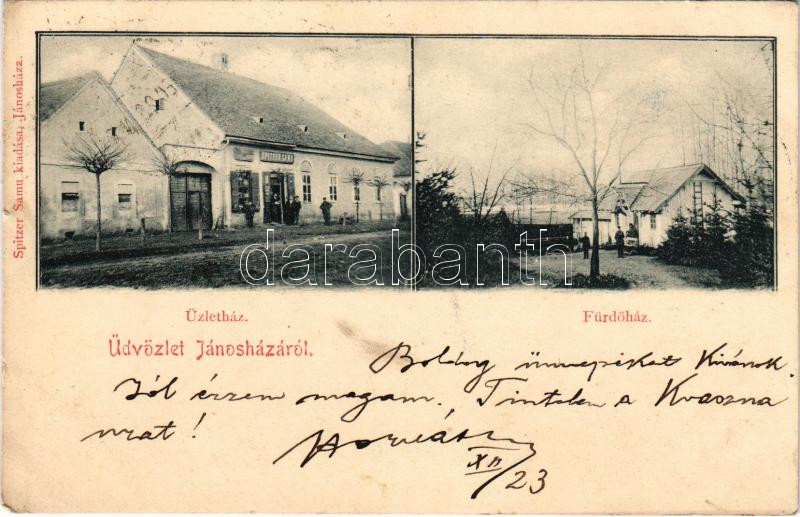 Spitzer Samu kiadása, Jánosháza.
SPITZER SAMU
darabanth.com
Üzletház.
Fürdőház.
Üdvözlet Jánosházáról.
Boldog ünnepeket Kivánok.
Jól érzem magam. Tintelen a Kvaszna
urat!
XII/23